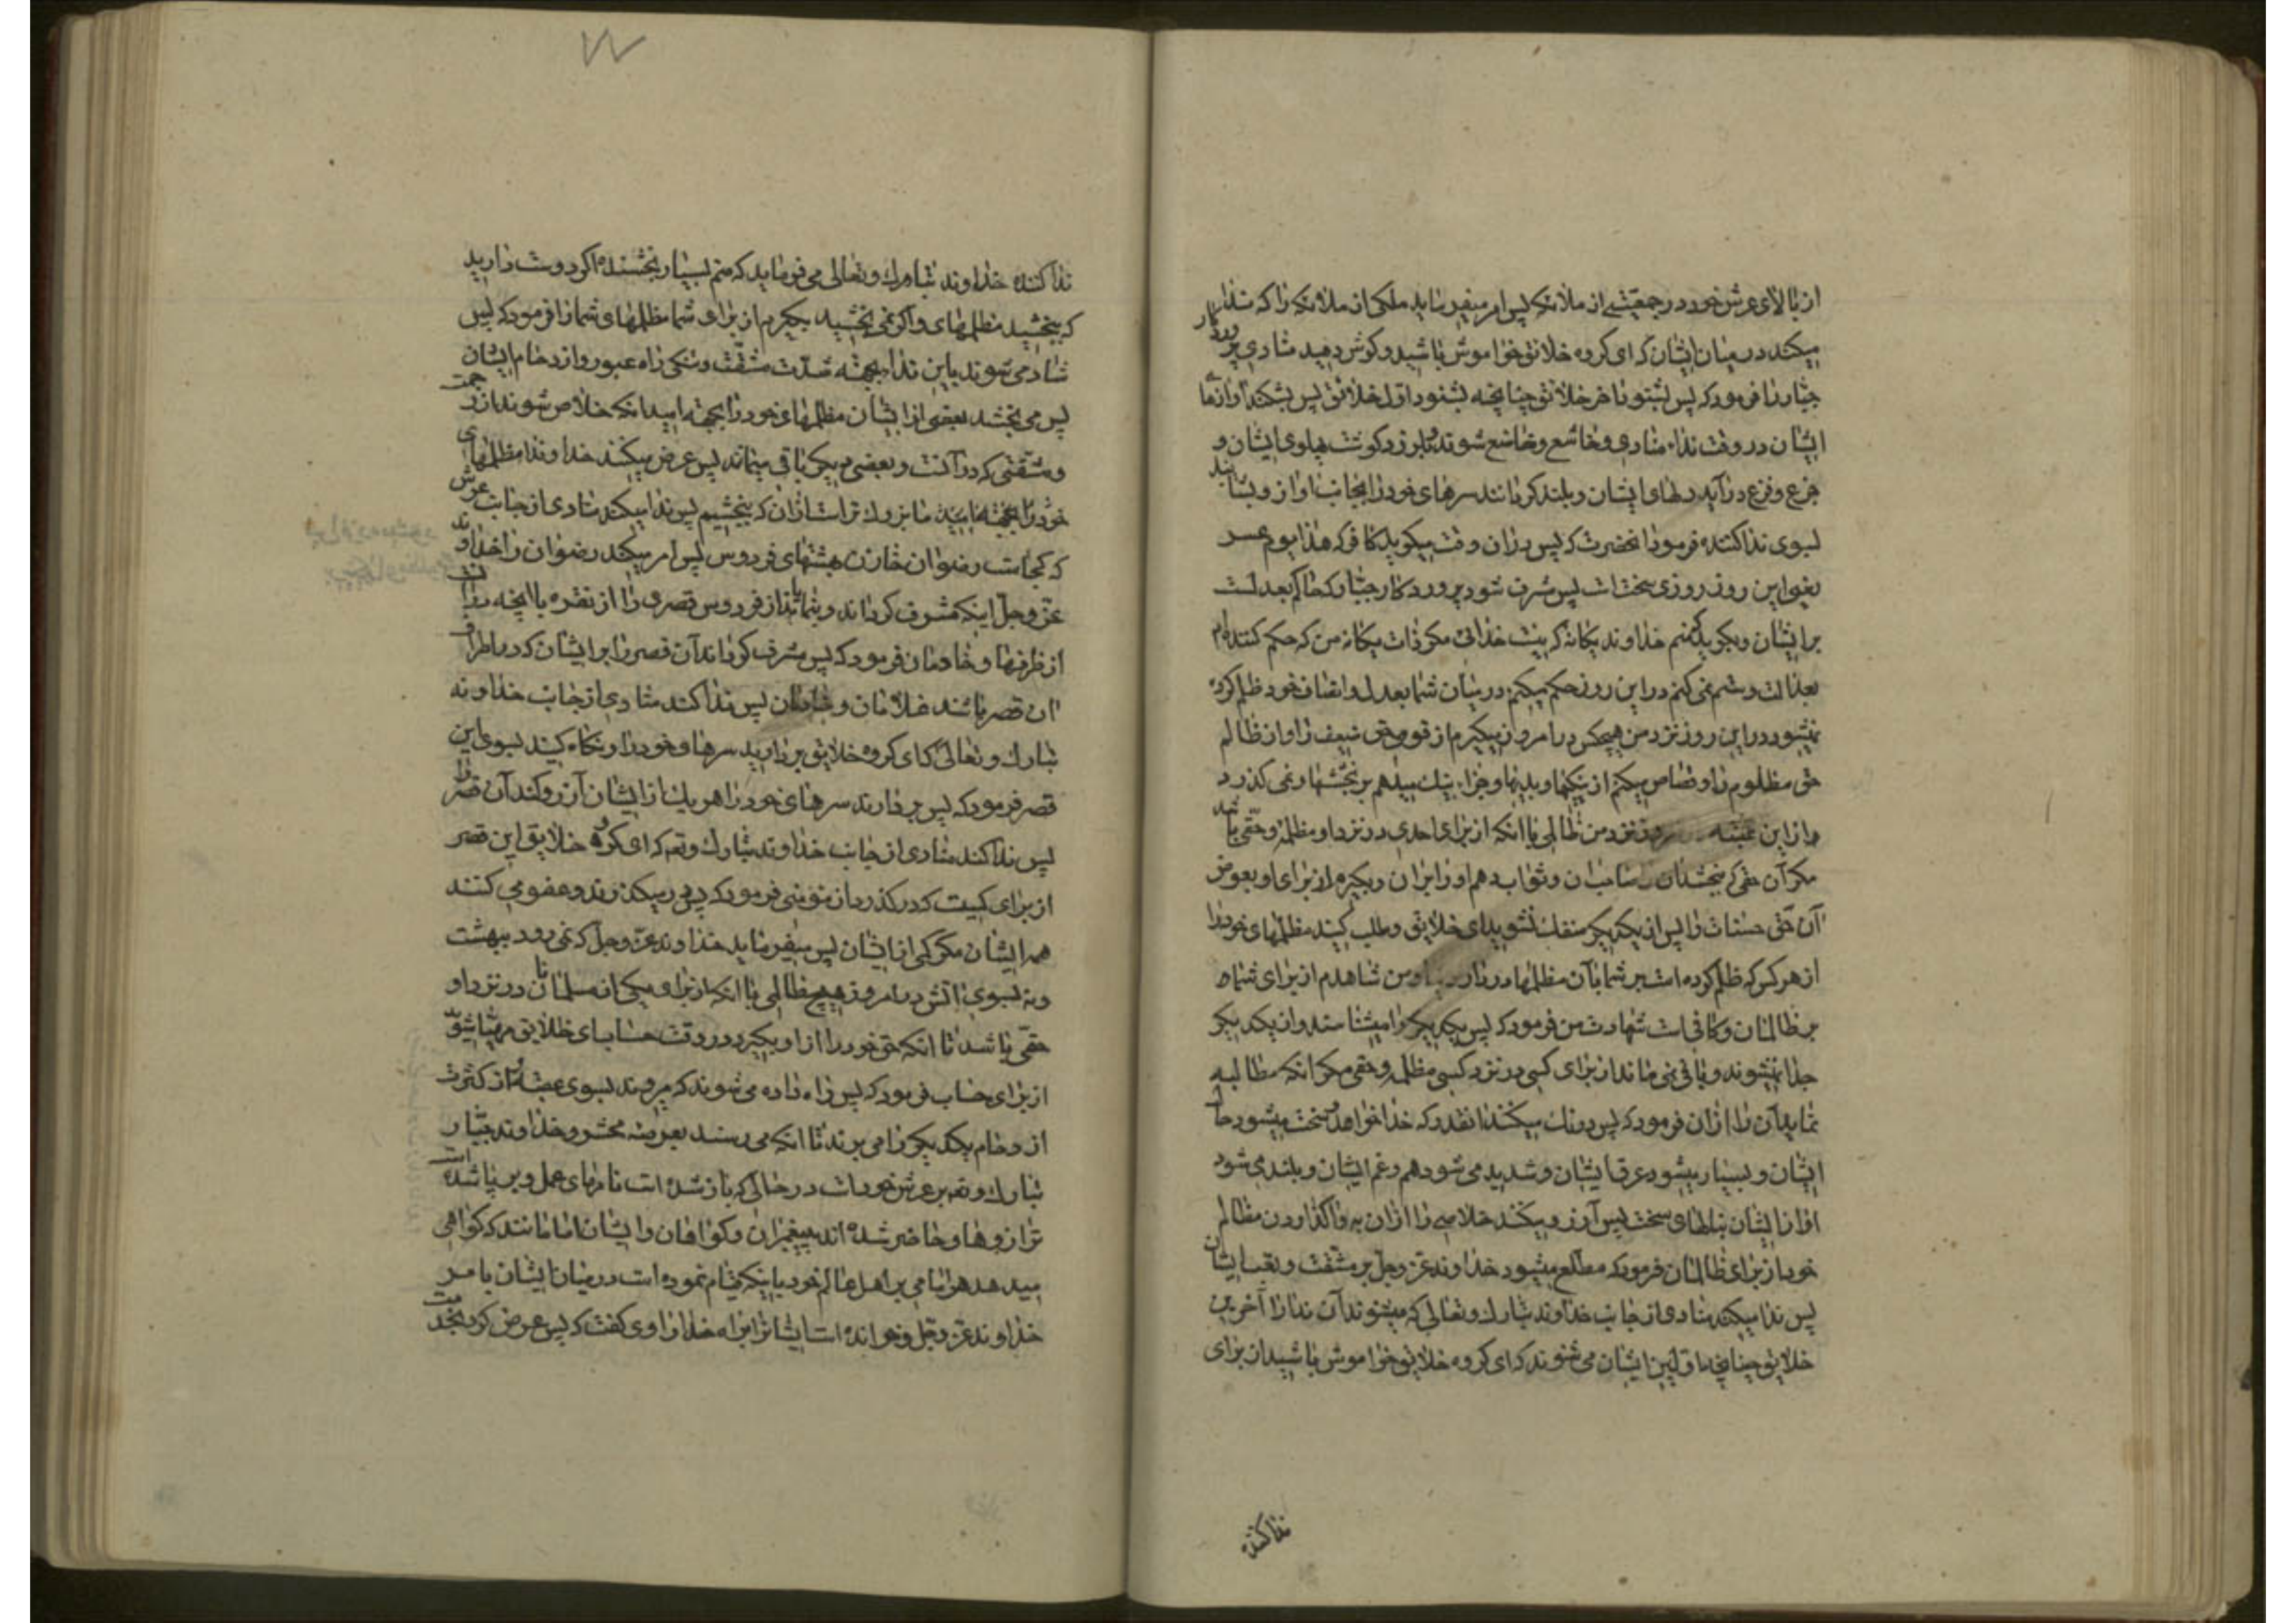 از بالای عرش خود در جمعیتی از ملائکه پس امر میفرماید ملکی از ملائکه را که ندا
میکند در میان ایشان که ای گروه خلائق خواموش باشید و گوش دهید منادی پروردگار
جبار را فرمود که پس بشنود آخر خلائق چنانچه بشنود اول خلائق پس بشکند آوازها
ایشان در وقت نداء منادی و خاشع و خاضع شوند و بلرزد گوشت پهلوی ایشان و
جزع و فزع درآید دلهای ایشان و بلند کردانند سرهای خود را بجانب آواز و بشتابند
بسوی ندا کننده فرمود آنحضرت که پس در آن وقت میگوید کافر که هذا یوم عسر
یعنی این روز روزی سخت است پس مشرف شود پروردگار جبار که حاکم بعدلست
بر ایشان و بگوید که منم خداوند یگانه که نیست خدائی مگر ذات یگانه من که حکم کننده ام
بعدالت و ستم نمی کنم در این روز حکم میکنم در میان شما بعدل و انصاف خود ظلم کرده
نمیشود در این روز نزد من هیچکس در امروز میگیرم از قوی حق ضعیف را و از ظالم
حق مظلوم را و قصاص میکنم از نیکیها و بدیها و جزاء نیک میدهم بر بخششها و نمی گذرد
از این عقبه روز نزد من ظالمی با آنکه از برای احدی در نزد او مظلمه و حقی باشد
مگر آن حقی که بخشد آن صاحبان و ثواب دهم او را بر آن و بگیرم از برای او بعوض
آن حق حسنات را پس از یکدیگر منفک نشوید ای خلائق و طلب کنید مظلمهای خود را
از هر کس که ظلم کرده است بر شما بآن مظلمها در دار دنیا و من شاهدم از برای شما
بر ظالمان و کافی است شهادت من فرمود که پس یکدیگر را میشناسند و از یکدیگر
جدا نمیشوند و باقی نمی ماند از برای کسی در نزد کسی مظلمه و حقی مگر آنکه مطالبه
نماید آن را از آن فرمود که پس درنک میکنند آنقدر که خدا خواهد و سخت میشود حال
ایشان و بسیار میشود عرق ایشان و شدید می شود هم و غم ایشان و بلند می شود
آواز ایشان بنالهای سخت پس آرزو میکنند خلاصی را از آن به واگذاردن مظالم
خود از برای ظالمان فرمود که مطلع میشود خداوند عز وجل بر مشقت و تعب ایشان
پس ندا میکند منادی از جانب خداوند تبارک و تعالی که میشنوند آن ندا را آخرین
خلائق چنانچه اولین ایشان می شنوند که ای گروه خلائق خواموش باشید از برای
ندا کننده
ندا کننده خداوند تبارک و تعالی می فرماید که منم بسیار بخشنده اگر دوست دارید
که ببخشید مظلمهای و اگر نمی بخشید بگیرم از برای شما مظلمهای شما را فرمود که پس
شاد می شوند باین ندا بجهته شدت مشقت و تنگی راه عبور و ازدحام ایشان
پس می بخشد بعضی از ایشان مظلمهای خود را بجهته امید آنکه خلاص شوند از زحمت
و مشقتی که در آنست و بعضی دیگر باقی میماند پس عرض میکنند خداوندا مظلمهای
خود را نمی بخشیم ما بزرگ تر است از آن که ببخشیم پس ندا میکند منادی از جانب عرش
که کجاست رضوان خازن بهشتهای فردوس پس امر میکند رضوان را خداوند
عز وجل اینکه مشرف گرداند و بنمایاند از فردوس قصری را از نقره با آنچه در آنست
از ظرفها و خادمان فرمود که پس مشرف گرداند آن قصر را بر ایشان که در اطراف
آن قصر باشند غلامان و خادمان پس ندا کند منادی از جانب خداوند
تبارک و تعالی که ای گروه خلایق بردارید سرهای خود را و نگاه کنید بسوی این
قصر فرمود که پس بردارند سرهای خود را هر یک از ایشان آرزو کند آن قصر را
پس ندا کند منادی از جانب خداوند تبارک وتعه که ای گروه خلایق این قصر
از برای کیست که درگذرد از مؤمنی فرمود که پس درمیگذرند و عفو می کنند
همه ایشان مگر کمی از ایشان پس میفرماید خداوند عز وجل که نمی رود ببهشت
و نه بسوی آتش در امروز هیچ ظالمی با آنکه از برای یکی از مسلمانان در نزد او
حقی باشد تا آنکه حق خود را از او بگیرد در وقت حساب ای خلایق مهیا شوید
از برای حساب فرمود که پس راه داده می شوند که میروند بسوی عقبه و از کثرت
ازدحام یکدیگر را می برند تا آنکه می رسند بعرصه محشر و خداوند جبار
تبارک وتعه بر عرش خود است در حالی که باز شده است نامهای عمل و برپا شده است
ترازوها و حاضر شده اند پیغمبران و گواهان و ایشان امامانند که گواهی
میدهد هر امامی بر اهل عالم خود باینکه قیام نموده است در میان ایشان بامر
خداوند عز وجل و خوانده است ایشانرا براه خدا راوی گفت که پس عرض کرد بخدمت